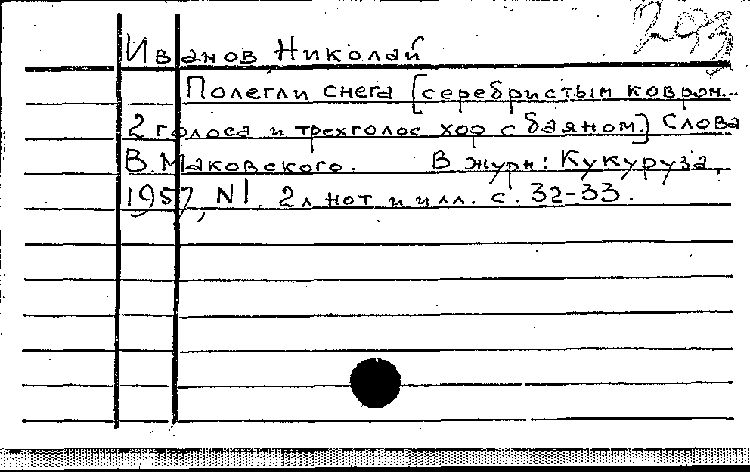 293
Иванов Николай
Полегли снега [серебристым ковром...
2 голоса и трехголос хор с баяном.] Слова
В. Маковского. В журн: Кукуруза,
1957, N1. 2 л нот и илл. с. 32-33.